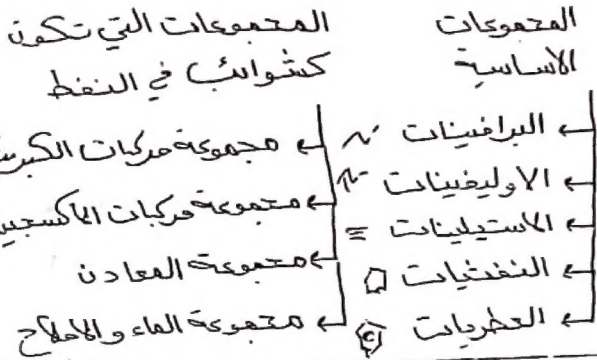 المجموعات الأساسية
البرافينات
الاوليفينات
الاستيلينات =
النفثينات
العطريات
المجموعات التي تكون كشوائب في النفط
مجموعة مركبات
مجموعة مركبات
مجموعة المعادن
مجموعة الماء والاملاح